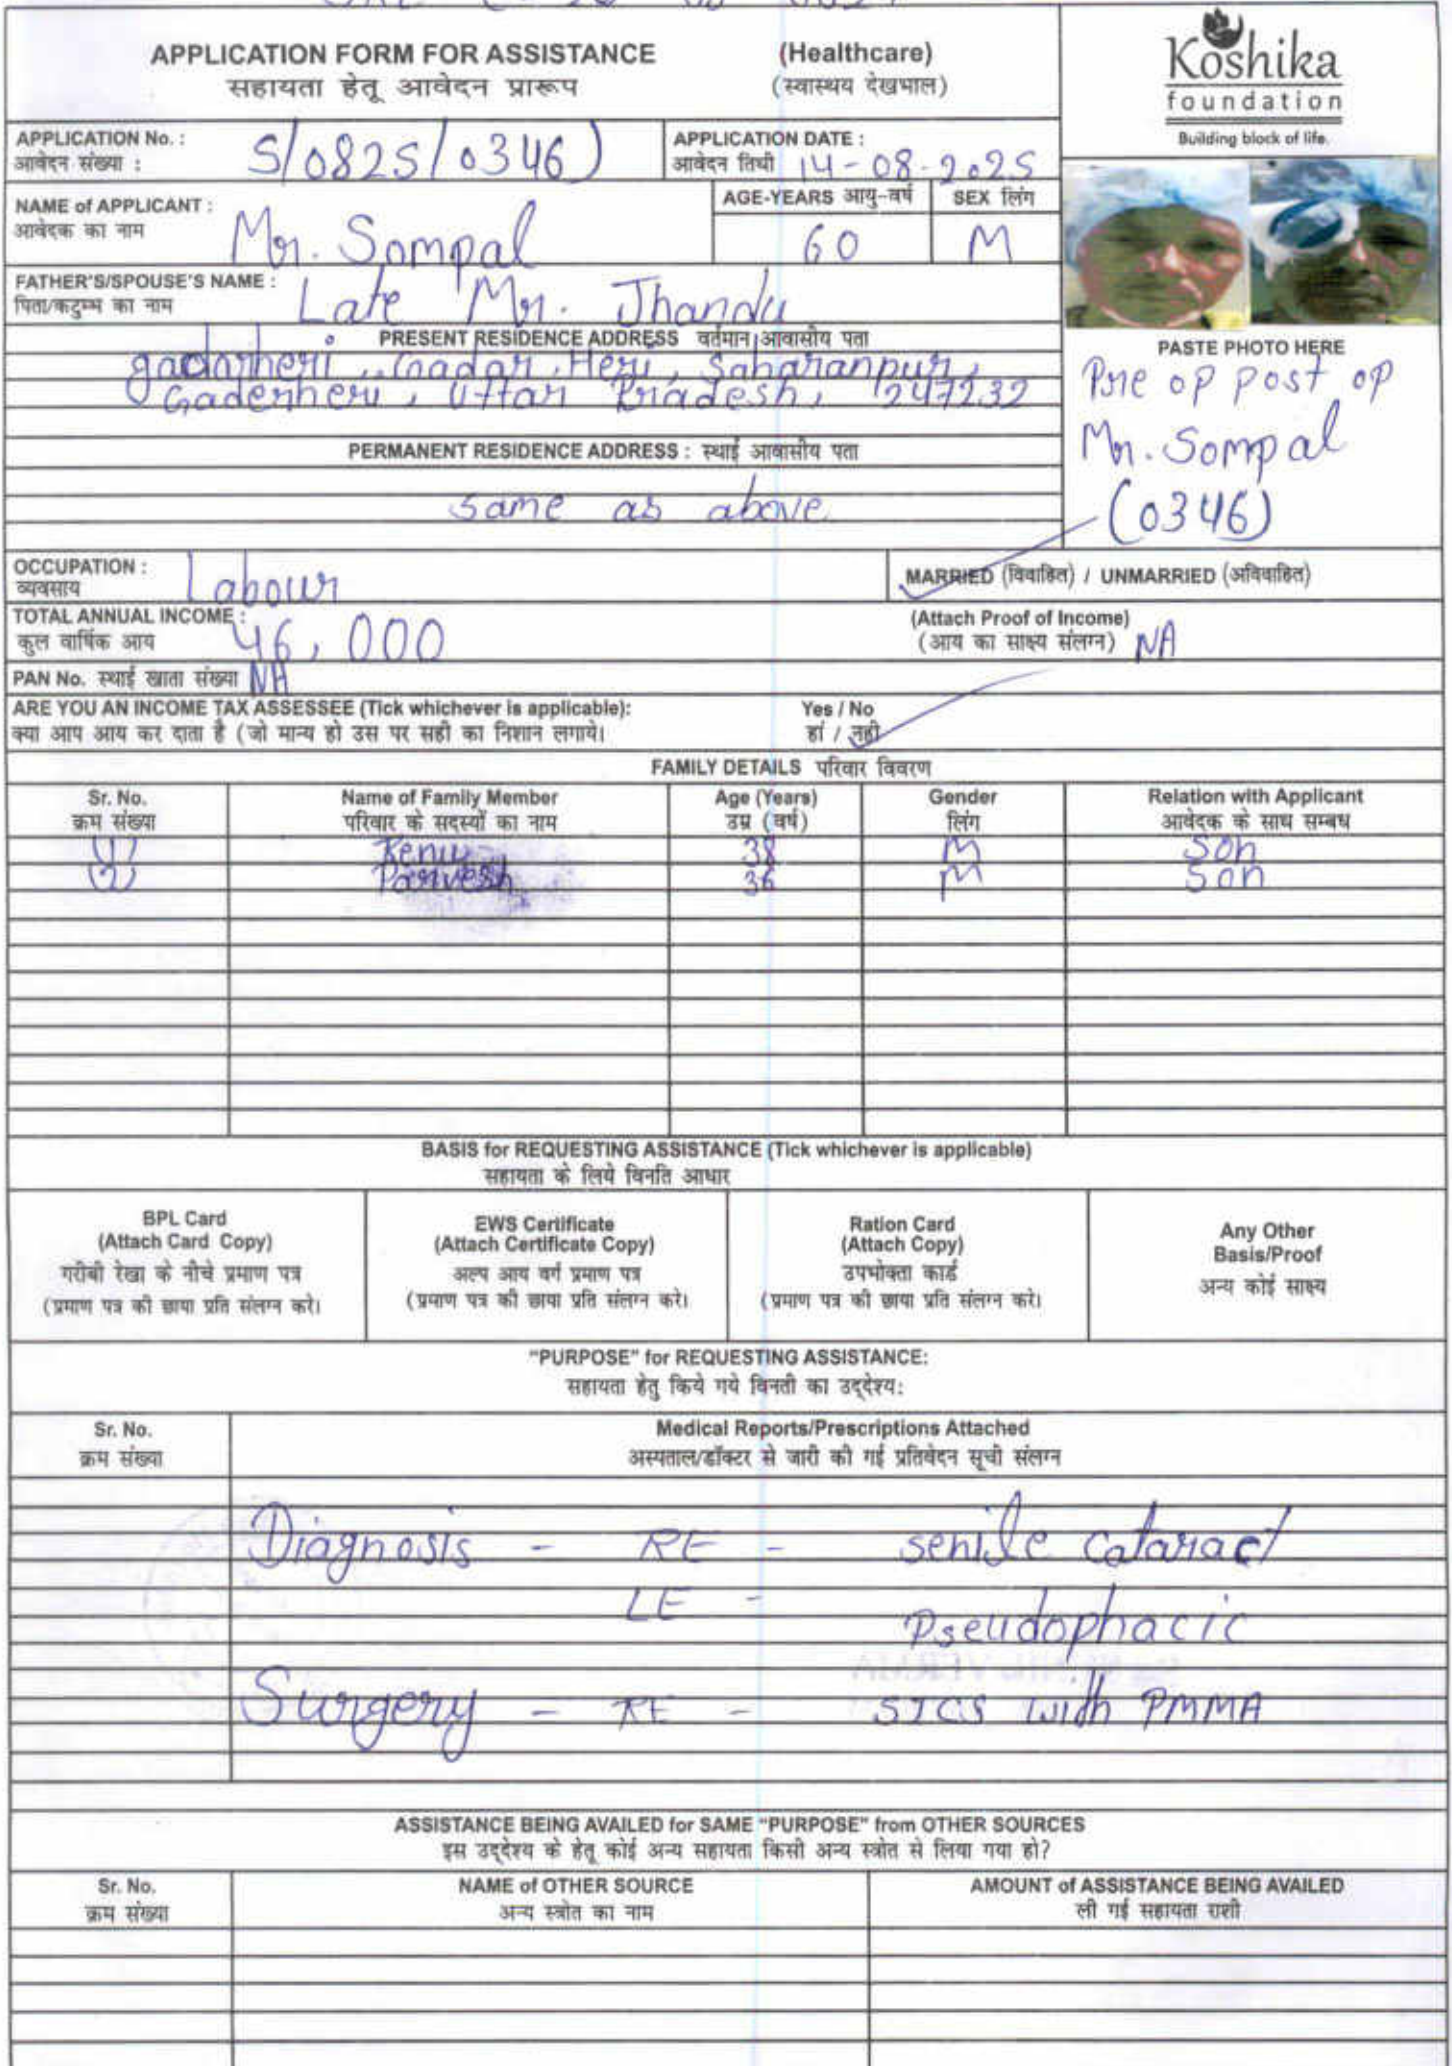 APPLICATION FORM FOR ASSISTANCE (Healthcare)
सहायता हेतू आवेदन प्रारूप (स्वास्थय देखभाल)
Koshika
foundation
Building block of life.
APPLICATION No. : S/0825/0346)
आवेदन संख्या :
APPLICATION DATE :
आवेदन तिथी 14-08-2025
NAME of APPLICANT : Mr. Sompal
आवेदक का नाम
AGE-YEARS आयु-वर्ष SEX लिंग
60 M
FATHER'S/SPOUSE'S NAME : Late Mr. Jhandu
पिता/कटुम्भ का नाम
PRESENT RESIDENCE ADDRESS वर्तमान आवासीय पता
gadarheri, Gadar Heri, Saharanpur,
Gaderheri, Uttar Pradesh, 247232
PASTE PHOTO HERE
Pre op post op
Mr. Sompal
(0346)
PERMANENT RESIDENCE ADDRESS : स्थाई आवासीय पता
same as above
OCCUPATION : Labour
व्यवसाय
MARRIED (विवाहित) / UNMARRIED (अविवाहित)
TOTAL ANNUAL INCOME : 46,000
कुल वार्षिक आय
(Attach Proof of Income)
(आय का साक्ष्य संलग्न) NA
PAN No. स्थाई खाता संख्या NA
ARE YOU AN INCOME TAX ASSESSEE (Tick whichever is applicable): Yes / No
क्या आप आय कर दाता है (जो मान्य हो उस पर सही का निशान लगाये। हां / नही
FAMILY DETAILS परिवार विवरण
Sr. No. Name of Family Member Age (Years) Gender Relation with Applicant
क्रम संख्या परिवार के सदस्यों का नाम उम्र (वर्ष) लिंग आवेदक के साथ सम्बध
(1) 38 M Son
(2) Parvesh 36 M Son
BASIS for REQUESTING ASSISTANCE (Tick whichever is applicable)
सहायता के लिये विनति आधार
BPL Card
(Attach Card Copy)
गरीबी रेखा के नीचे प्रमाण पत्र
(प्रमाण पत्र की छाया प्रति संलग्न करे।
EWS Certificate
(Attach Certificate Copy)
अल्प आय वर्ग प्रमाण पत्र
(प्रमाण पत्र की छाया प्रति संलग्न करे।
Ration Card
(Attach Copy)
उपभोक्ता कार्ड
(प्रमाण पत्र की छाया प्रति संलग्न करे।
Any Other
Basis/Proof
अन्य कोई साक्ष्य
"PURPOSE" for REQUESTING ASSISTANCE:
सहायता हेतु किये गये विनती का उद्देश्य:
Sr. No. Medical Reports/Prescriptions Attached
क्रम संख्या अस्पताल/डॉक्टर से जारी की गई प्रतिवेदन सूची संलग्न
Diagnosis - RE - senile cataract
LE - Pseudophacic
Surgery - RE - SICS with PMMA
ASSISTANCE BEING AVAILED for SAME "PURPOSE" from OTHER SOURCES
इस उद्देश्य के हेतू कोई अन्य सहायता किसी अन्य स्त्रोत से लिया गया हो?
Sr. No. NAME of OTHER SOURCE AMOUNT of ASSISTANCE BEING AVAILED
क्रम संख्या अन्य स्त्रोत का नाम ली गई सहायता राशी